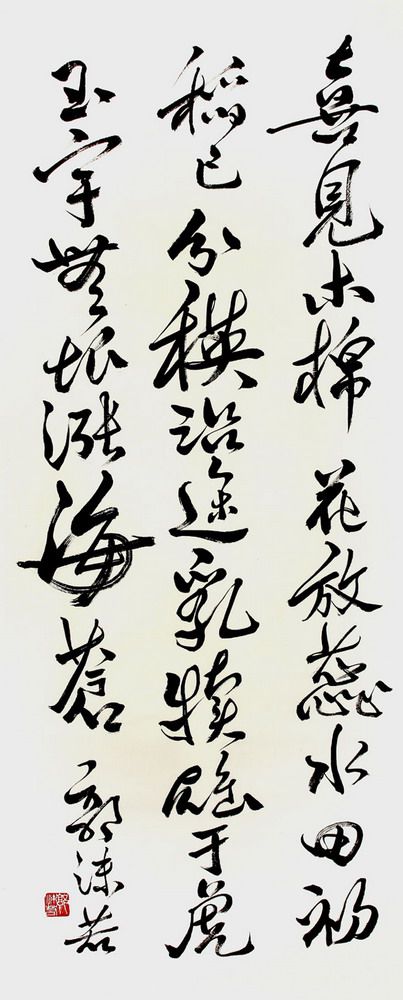 喜見木棉花放蕊水田初
稻已分秧沿途乳犢雄于虎
玉宇無垠漲海蒼 郭沫若